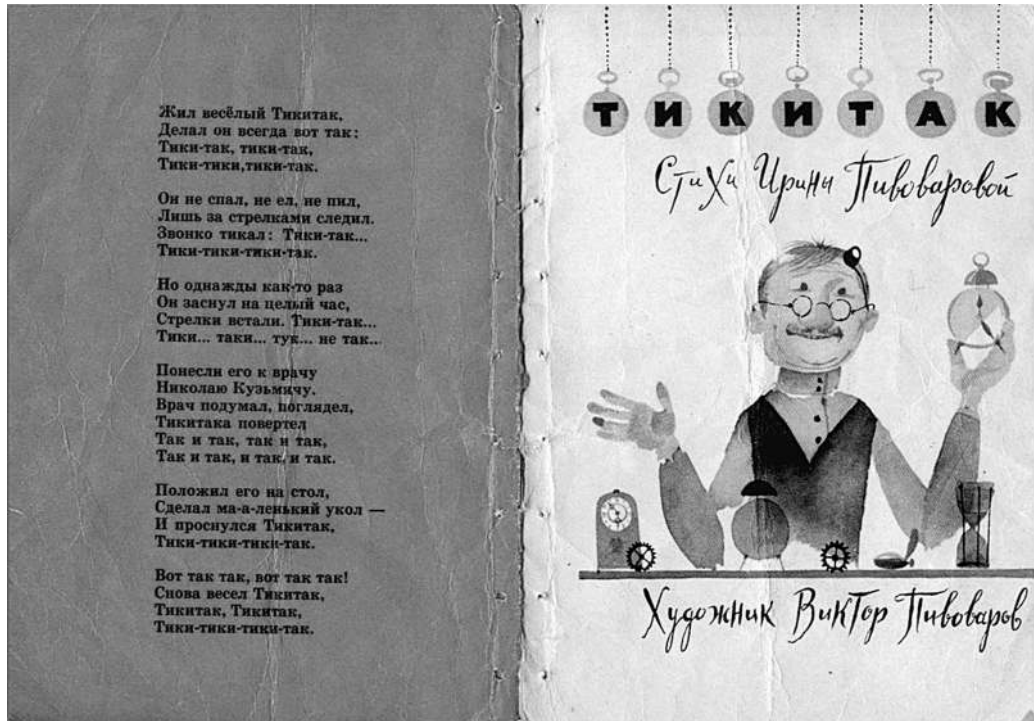 Жил весёлый Тикитак,
Делал он всегда вот так:
Тики-так, тики-так,
Тики-тики,тики-так.
Он не спал, не ел, не пил,
Лишь за стрелками следил.
Звонко тикал: Тики-так...
Тики-тики-тики-так.
Но однажды как-то раз
Он заснул на целый час,
Стрелки встали. Тики-так...
Тики... таки... тук... не так...
Понесли его к врачу
Николаю Кузьмичу.
Врач подумал, поглядел,
Тикитака повертел
Так и так, так и так,
Так и так, и так, и так.
Положил его на стол,
Сделал ма-а-ленький укол —
И проснулся Тикитак,
Тики-тики-тики-так.
Вот так так, вот так так!
Снова весел Тикитак,
Тикитак, Тикитак,
Тики-тики-тики-так.
ТИКИТАК
Стихи Ирины Пивоваровой
Художник Виктор Пивоваров